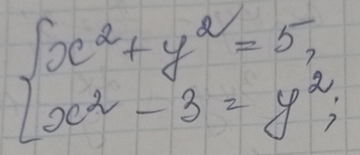 x² + y² = 5,
x² - 3 = y²;